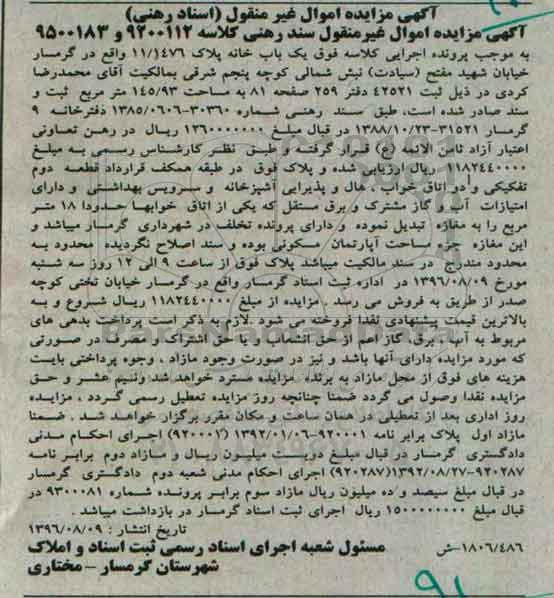 آگهی مزایده اموال غیر منقول (اسناد رهنی)
آگهی مزایده اموال غیرمنقول سند رهنی کلاسه ۹۲۰۰۱۱۲ و ۹۵۰۰۱۸۳
به موجب پرونده اجرایی کلاسه فوق یک باب خانه پلاک ۱۱/۱۴۷۶ واقع در گرمسار
خیابان شهید مفتح (سیادت) نبش شمالی کوچه پنجم شرقی بمالکیت آقای محمدرضا
کردی در ذیل ثبت ۴۲۵۲۱ دفتر ۲۵۹ صفحه ۸۱ به مساحت ۱۴۵/۹۳ متر مربع ثبت و
سند صادر شده است، طبق سند رهنی شماره ۳۰۳۶۰-۱۳۸۵/۰۶۰۶ دفترخانه ۹
گرمسار ۳۱۵۲۱-۱۳۸۸/۱۰/۲۳ در قبال مبلغ ۱۳۶۰۰۰۰۰۰۰ ریال در رهن تعاونی
اعتبار آزاد ثامن الائمه (ع) قرار گرفته و طبق نظر کارشناس رسمی به مبلغ
۱۱۸۲۴۴۰۰۰۰ ریال ارزیابی شده و پلاک فوق در طبقه همکف قرارداد قطعه دوم
تفکیکی و دو اتاق خواب ، هال و پذیرایی آشپزخانه و سرویس بهداشتی و دارای
امتیازات آب و گاز مشترک و برق مستقل که یکی از اتاق خوابها حدودا ۱۸ متر
مربع را به مغازه تبدیل نموده و دارای پرونده تخلف در شهرداری گرمسار میباشد و
این مغازه جزء مساحت آپارتمان مسکونی بوده و سند اصلاح نگردیده محدود به
محدود مندرج در سند مالکیت میباشد پلاک فوق از ساعت ۹ الی ۱۲ روز سه شنبه
مورخ ۱۳۹۶/۰۸/۰۹ در اداره ثبت اسناد گرمسار واقع در گرمسار خیابان تختی کوچه
صدر از طریق به فروش می رسد . مزایده از مبلغ ۱۱۸۲۴۴۰۰۰۰ ریال شروع و به
بالاترین قیمت پیشنهادی نقدا فروخته می شود .لازم به ذکر است پرداخت بدهی های
مربوط به آبها ، برق، گاز اعم از حق انشعاب و یا حق اشتراک و مصرف در صورتی
که مورد مزایده دارای آنها باشد و نیز در صورت وجود مازاد ، وجوه پرداختی بابت
هزینه های فوق از محل مازاد به برنده مزایده مسترد خواهد شد ونیم عشر و حق
مزایده نقدا وصول می گردد ضمنا چنانچه روز مزایده تعطیل رسمی گردد ، مزایده
روز اداری بعد از تعطیلی در همان ساعت و مکان مقرر برگزار خواهد شد . ضمنا
مازاد اول پلاک برابر نامه ۹۲۰۰۰۱-۱۳۹۲/۰۱/۰۶ (۹۲۰۰۰۱) اجرای احکام مدنی
دادگستری گرمسار در قبال مبلغ دویست میلیون ریال و مازاد دوم برابر نامه
۹۲۰۲۸۷-۱۳۹۲/۰۸/۲۷(۹۲۰۲۸۷) اجرای احکام مدنی شعبه دوم دادگستری گرمسار
در قبال مبلغ سیصد و ده میلیون ریال مازاد سوم برابر پرونده شماره ۹۳۰۰۰۸۱ در
قبال مبلغ ۱۵۰۰۰۰۰۰۰۰ ریال اجرای ثبت اسناد گرمسار در بازداشت میباشد .
تاریخ انتشار : ۱۳۹۶/۰۸/۰۹
۱۸۰۶/۴۸۶-ش مسئول شعبه اجرای اسناد رسمی ثبت اسناد و املاک
شهرستان گرمسار – مختاری
۹۱